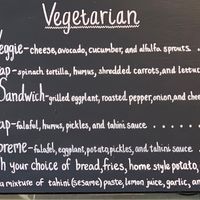 Vegetarian
eggie-cheese, avocado, cucumber, and alfalfa sprouts.
ap-spinach tortilla, humus, shredded carrots, and lettuc
Sandwich-grilled eggplant, roasted pepper, onion, and chee
ap-falafel, humus, pickles, and tahini sauce . . . . .
preme-falafel, eggplant, potato, pickles, and tahini sauce . .
h your choice of bread, fries, home style potato,
a mixture of tahini (sesame) paste, lemon juice, garlic, an